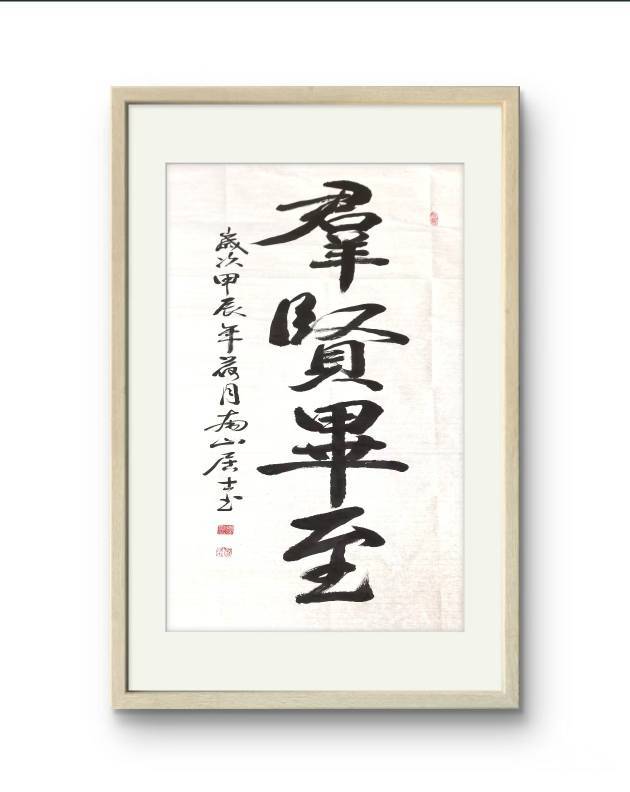 羣賢畢至
歲次甲辰年荷月南山居士书